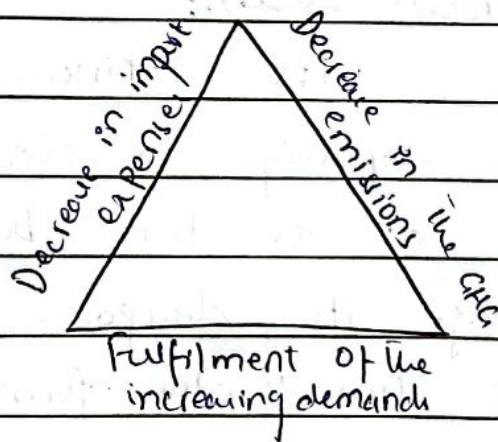 Decrease in import
expense.
Decrease in the GHG
emissions
Fulfilment of the
increasing demands